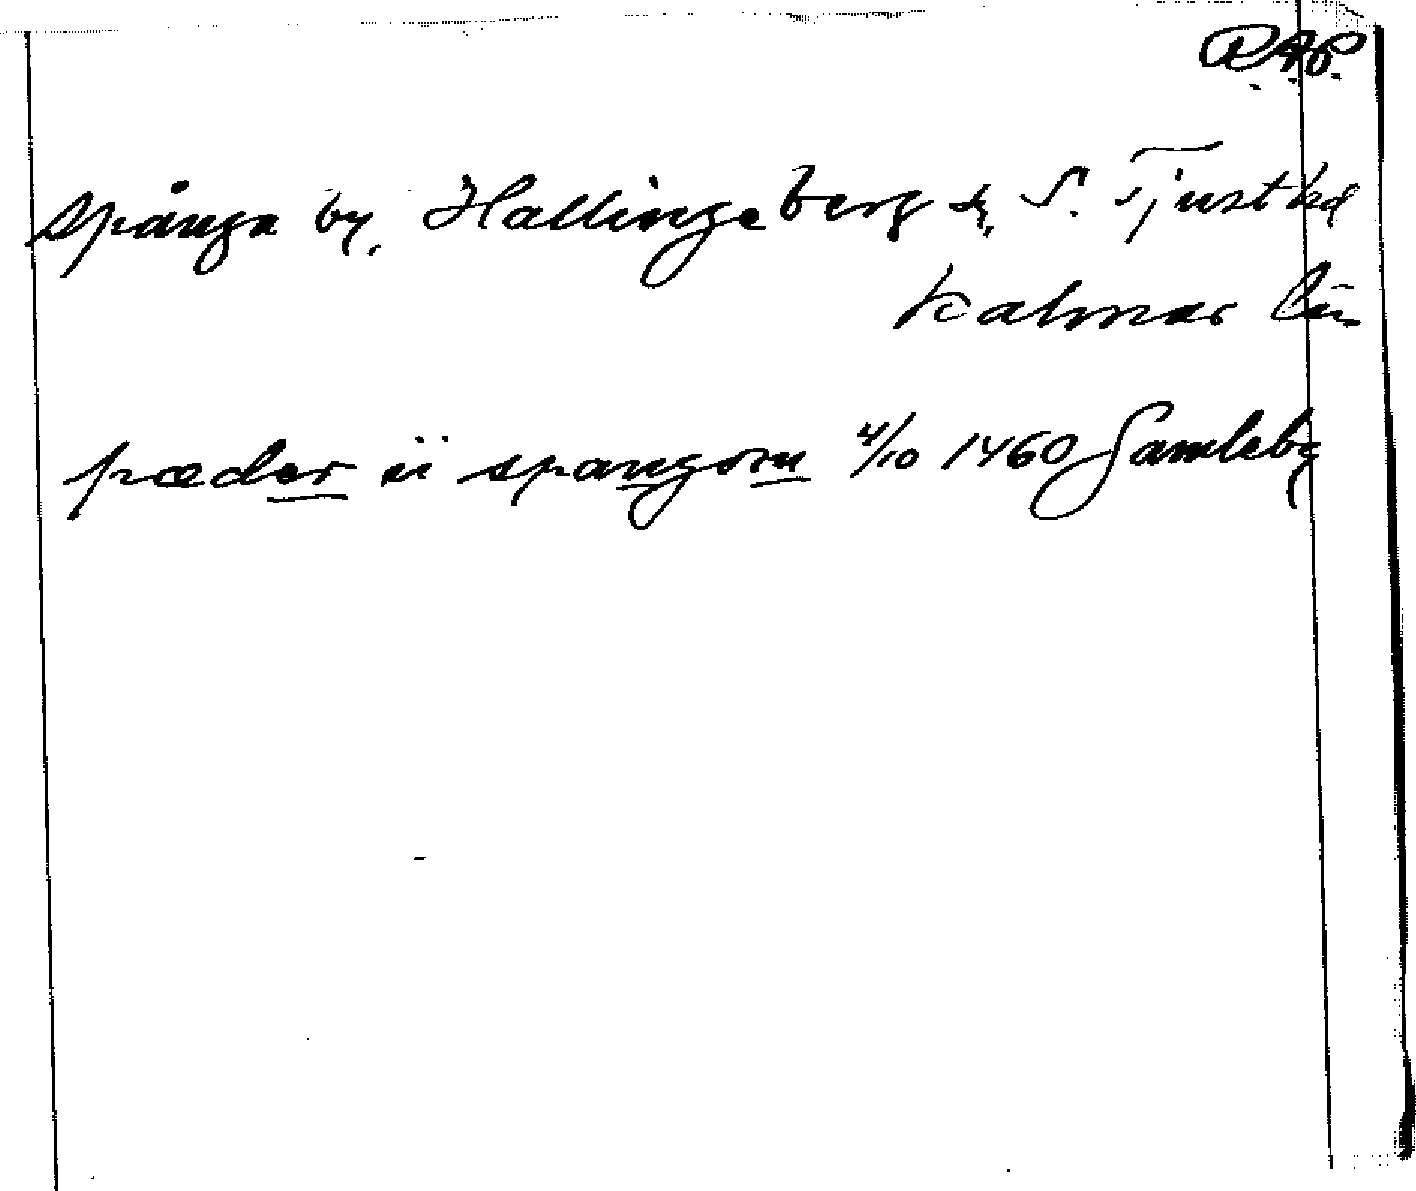 R.A.P.
Spånga by, Hallingeberg sn, S. Tjust hd
Kalmar län
pæder ij spangom 4/10 1460 Gamleby